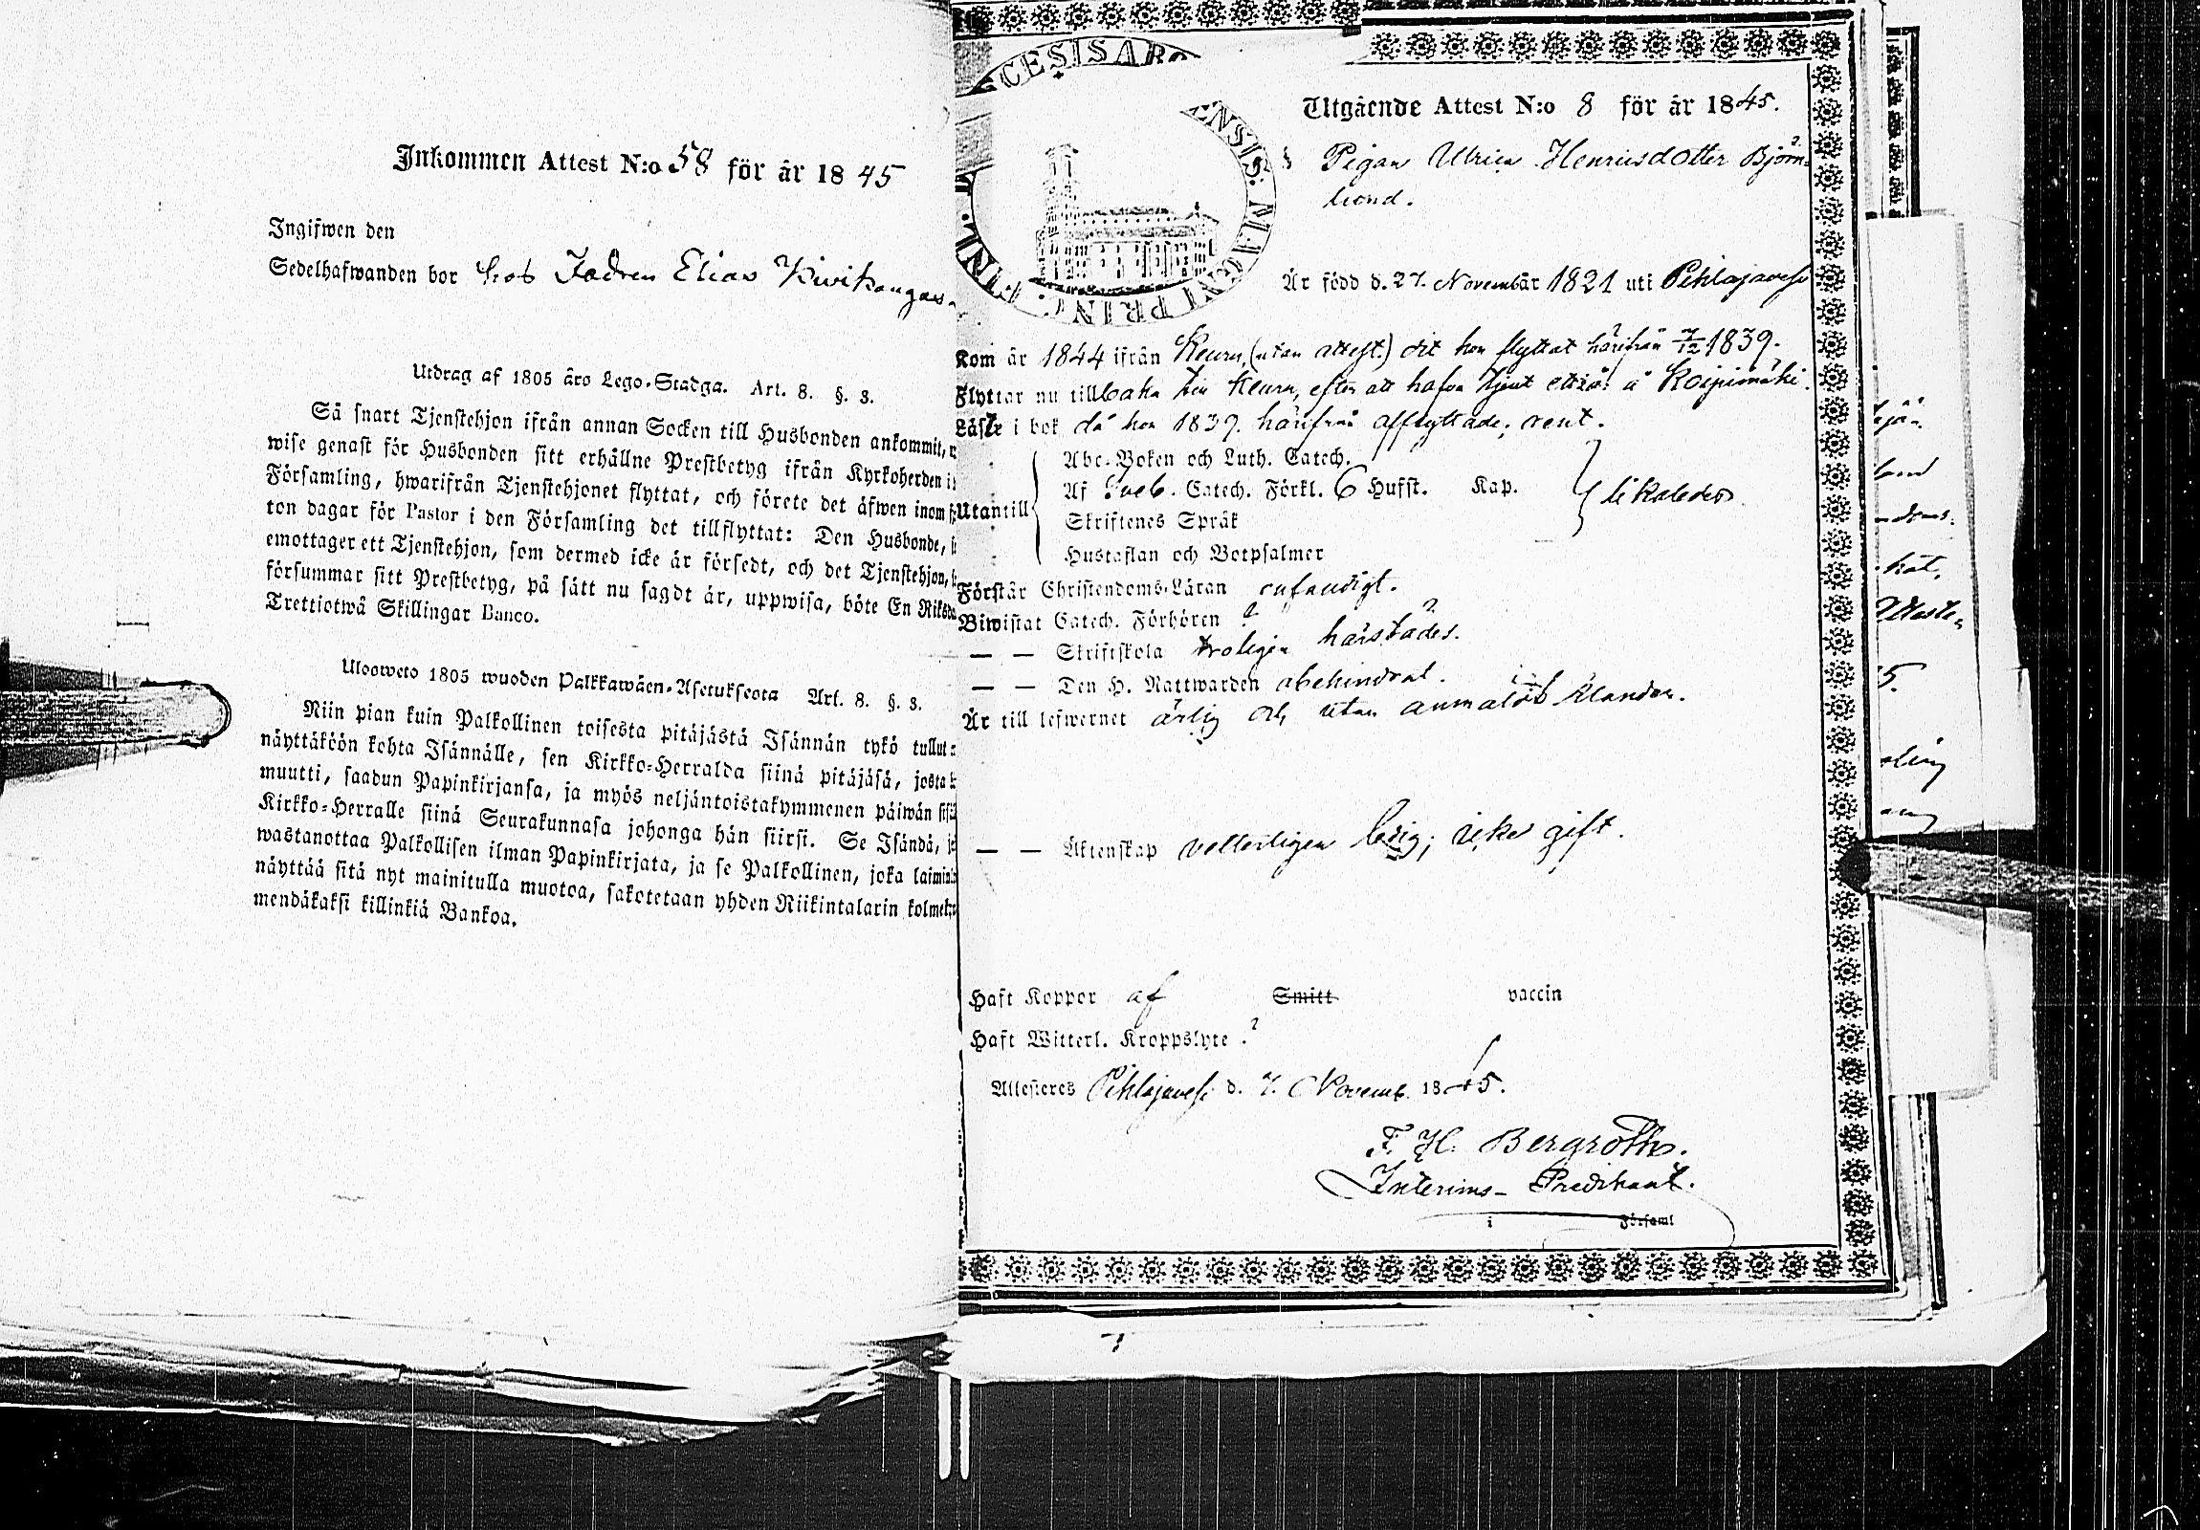 Inkommen Attest N:o 58 för år 1845
Ingifwen den
Sedelhafwanden bor hos Elias Kiwikangas
Utdrag af 1805 års Lego-Stadga. Art. 8. §. 3.
Så snart Tjenstehjon ifrån annan Socken till Husbonden ankommit,
wise genast för Husbonden sitt erhållne Prestbetyg ifrån Kyrkoherden i
Församling, hwarifrån Tjenstehjonet flyttat, och förete det äfwen inom
ton dagar för Pastor i den Församling det tillflyttat: Den Husbonde,
emottager ett Tjenstehjon, som dermed icke är försedt, och det Tjenstehjon,
försummar sitt Prestbetyg, på sätt nu sagdt är, uppwisa, böte En Riksd
Trettiotwå Skillingar Banco.
Uloosweto 1805 wuoden Palkkawäen-Asetuksesta Art. 8. §. 3.
Niin pian kuin Palkollinen toisesta pitäjästä Isännän tykö tullut
näyttäköön kohta Isännälle, sen Kirkko-Herralda siinä pitäjäsä, josta
muutti, saadun Papinkirjansa, ja myös neljäntoistakymmenen päiwän sis
Kirkko-Herralle siinä Seurakunnasa johonga hän siirsi. Se Isändä,
wastanottaa Palkollisen ilman Papinkirjata, ja se Palkollinen, joka laimin
näyttää sitä nyt mainitulla muotoa, sakotetaan yhden Riikintalarin kolme
mendäkaksi killinkiä Bankoa.
CESIS ABO ENSIS. MAGNI PRINC. FINL.
Utgående Attest N:o 8 för år 1845.
Pigan Ulrica Henricsdotter Björn-
lund.
Är född d. 27. November 1821 uti Pihlajavesi
Kom år 1844 ifrån Keuru, (utan attest.) dit hon flyttat härifrån 7/12 1839.
Flyttar nu tillbaka till Keuru, efter att hafva tjent ett år å Koipimäki.
Läste i bok då hon 1839. härifrån afflyttade; rent.
Abc-Boken och Luth. Catech.
Af Sveb. Catech. Förkl. 6 Hufst. Kap.
Utantill likaledes
Skriftenes Språk
Hustaflan och Botpsalmer
Förstår Christendoms-Läran enfaldigt.
Biwistat Catech. Förhören ?
— — Skriftskola troligen härstädes.
— — Den H. Nattwarden obehindrat.
Är till lefwernet ärlig och utan anmäldt klander.
— — Äktenskap vetterligen ledig; icke gift.
Haft Koppor af Smitt vaccin
Haft Witterl. Kroppslyte ?
Attesteres Pihlajavesi d. 7. Novemb. 1845.
F. H. Bergroth.
Interims-Predikant.
i Församl